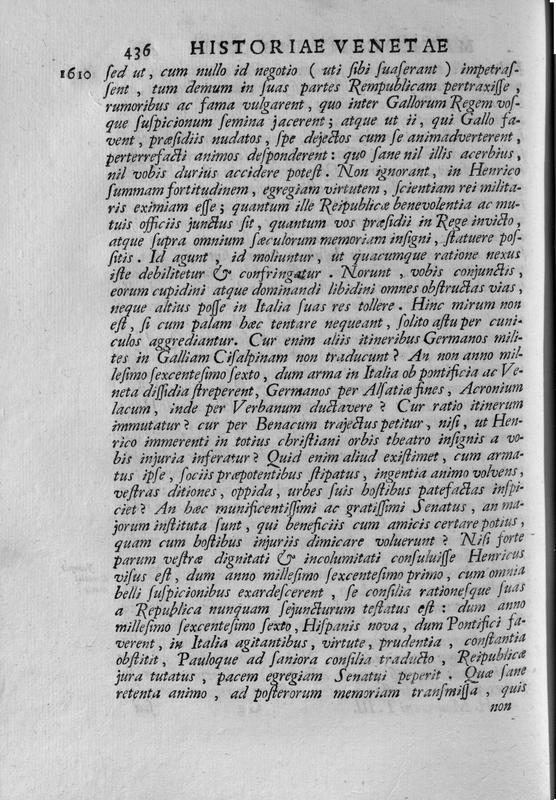 436 HISTORIAE VENETAE
1610 sed ut, cum nullo id negotio ( uti sibi suaserant ) impetras-
sent , tum demum in suas partes Rempublicam pertraxisse ,
rumoribus ac fama vulgarent, quo inter Gallorum Regem vos-
que suspicionum semina jacerent; atque ut ii, qui Gallo fa-
vent, præsidiis nudatos, spe dejectos cum se animadverterent,
perterrefacti animos desponderent: quo sane nil illis acerbius,
nil vobis durius accidere potest. Non ignorant, in Henrico
summam fortitudinem, egregiam virtutem, scientiam rei milita-
ris eximiam esse; quantum ille Reipublicæ benevolentia ac mu-
tuis officiis junctus sit, quantum vos præsidii in Rege invicto,
atque supra omnium sæculorum memoriam insigni, statuere pos-
sitis. Id agunt , id moliuntur, ut quacumque ratione nexus
iste debilitetur & confringatur . Norunt , vobis conjunctis,
eorum cupidini atque dominandi libidini omnes obstructas vias,
neque altius posse in Italia suas res tollere. Hinc mirum non
est, si cum palam hæc tentare nequeant, solito astu per cuni-
culos aggrediantur. Cur enim aliis itineribus Germanos mili-
tes in Galliam Cisalpinam non traducunt? An non anno mil-
lesimo sexcentesimo sexto, dum arma in Italia ob pontificia ac Ve-
neta dissidia streperent, Germanos per Alsatiæ fines, Acronium
lacum, inde per Verbanum ductavere? Cur ratio itinerum
immutatur? cur per Benacum trajectus petitur, nisi, ut Hen-
rico immerenti in totius christiani orbis theatro insignis a vo-
bis injuria inferatur? Quid enim aliud existimet, cum arma-
tus ipse, sociis præpotentibus stipatus, ingentia animo volvens,
vestras ditiones, oppida, urbes suis hostibus patefactas inspi-
ciet? An hæc munificentissimi ac gratissimi Senatus, an ma-
jorum instituta sunt, qui beneficiis cum amicis certare potius,
quam cum hostibus injuriis dimicare voluerunt? Nisi forte
parum vestræ dignitati & incolumitati consuluisse Henricus
visus est, dum anno millesimo sexcentesimo primo, cum omnia
belli suspicionibus exardescerent, se consilia rationesque suas
a Republica nunquam sejuncturum testatus est: dum anno
millesimo sexcentesimo sexto, Hispanis nova, dum Pontifici fa-
verent, in Italia agitantibus, virtute, prudentia, constantia
obstitit, Pauloque ad saniora consilia traducto, Reipublicæ
jura tutatus , pacem egregiam Senatui peperit . Quæ sane
retenta animo , ad posterorum memoriam transmissa , quis
non